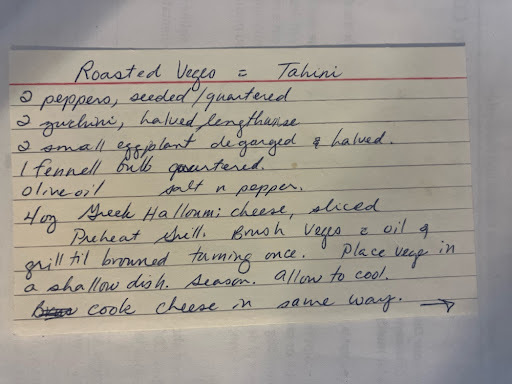 Roasted Veges = Tahini
2 peppers, seeded/quartered
2 zuchini, halved lengthwise
2 small eggplant degorged & halved.
1 fennell bulb quartered.
olive oil salt n pepper.
4 oz Greek Halloumi cheese, sliced
Preheat Grill. Brush Veges = oil &
grill til browned turning once. Place vege in
a shallow dish. Season. Allow to cool.
cook cheese in same way. →